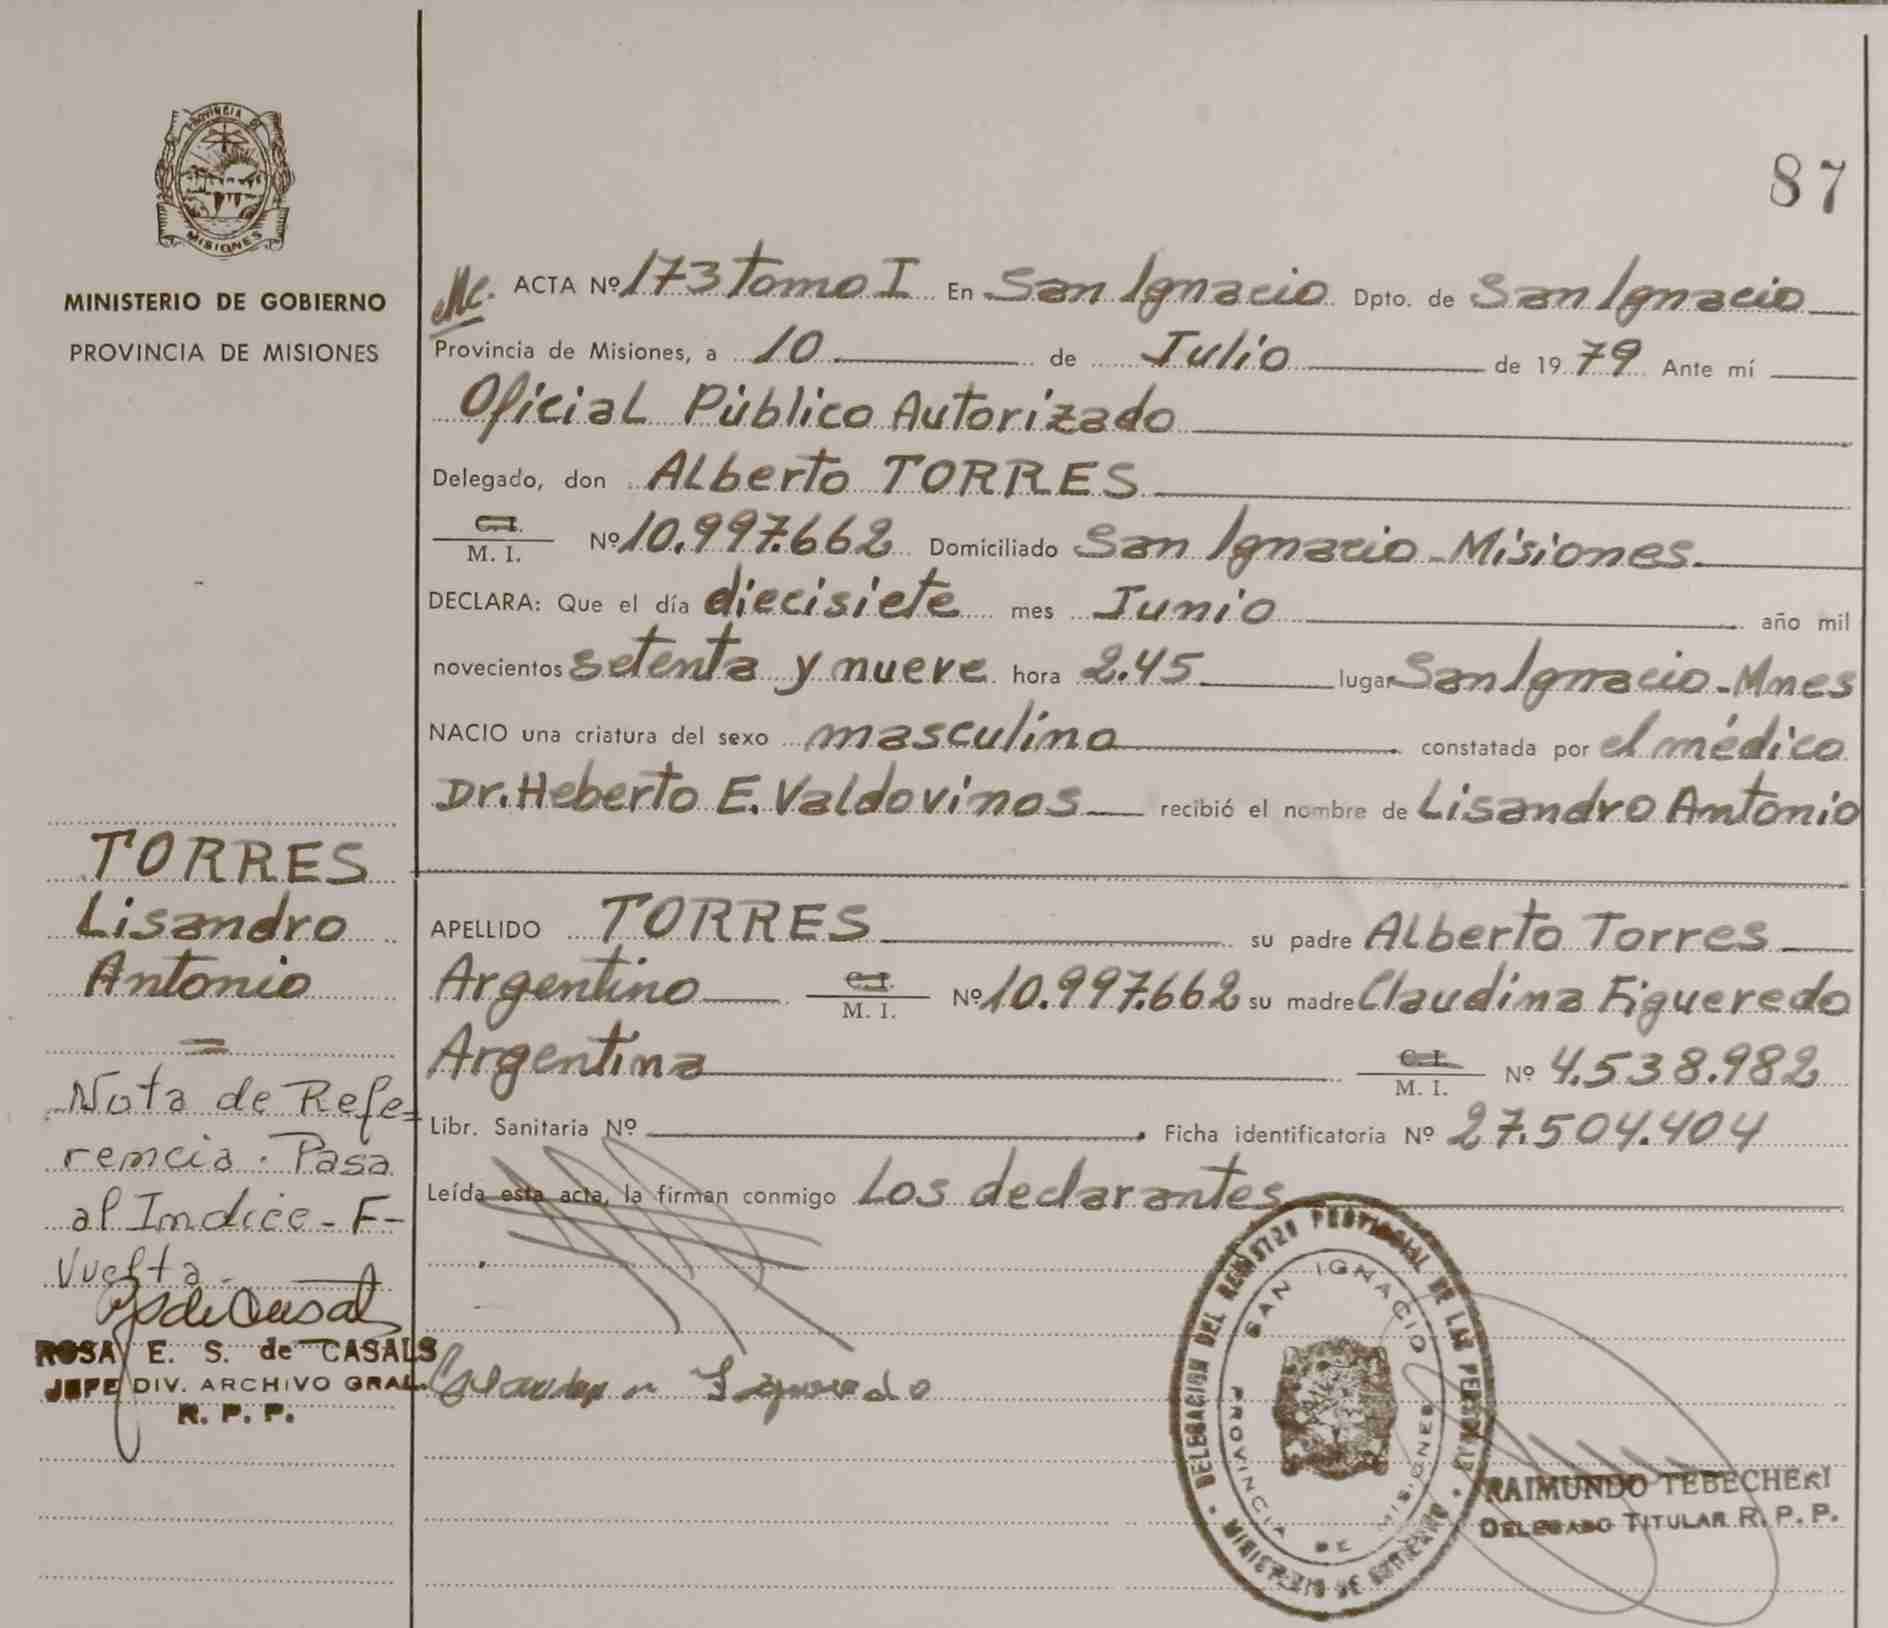 PROVINCIA DE
MISIONES
MINISTERIO DE GOBIERNO
PROVINCIA DE MISIONES
87
Mc. ACTA Nº 173 Tomo I En San Ignacio Dpto. de San Ignacio
Provincia de Misiones, a 10 de Julio de 1979 Ante mí
Oficial Público Autorizado
Delegado, don Alberto TORRES
C.I.
M. I. Nº 10.997.662 Domiciliado San Ignacio - Misiones.
DECLARA: Que el día diecisiete mes Junio año mil
novecientos setenta y nueve hora 2.45 lugar San Ignacio - Mnes
NACIO una criatura del sexo masculino constatada por el médico
Dr. Heberto E. Valdovinos recibió el nombre de Lisandro Antonio
APELLIDO TORRES su padre Alberto Torres
Argentino C.I. M. I. Nº 10.997.662 su madre Claudina Figueredo
Argentina C.I. M. I. Nº 4.538.982
Libr. Sanitaria Nº Ficha identificatoria Nº 27.504.404
Leída esta acta, la firman conmigo Los declarantes
TORRES
Lisandro
Antonio
=
Nota de Refe-
rencia. Pasa
al Indice - F-
Vuelta.
ROSA E. S. de CASALS
JEFE DIV. ARCHIVO GRAL.
R. P. P.
DELEGACION DEL REGISTRO PROVINCIAL DE LAS PERSONAS
SAN IGNACIO
PROVINCIA DE MISIONES
RAIMUNDO TEBECHERI
DELEGADO TITULAR R. P. P.